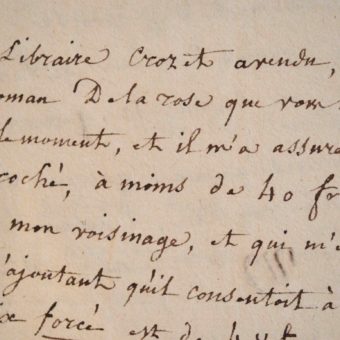 Libraire Crozet avendu,
oman De la rose que vous
le moment, et il m'a assuré
coché, à moins de 40 fr
mon voisinage, et qui m'e
'ajoutant qu'il consentoit à
forcé est de